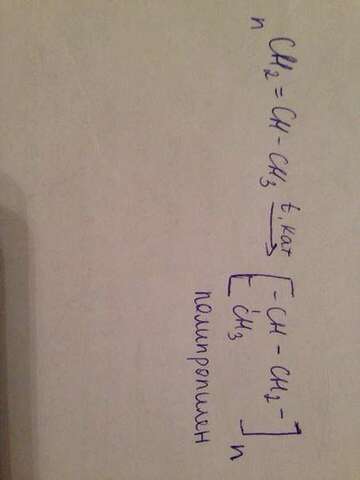 n CH₂ = CH - CH₃ t, кат → [- CH - CH₂ -]n
CH₃
полипропилен